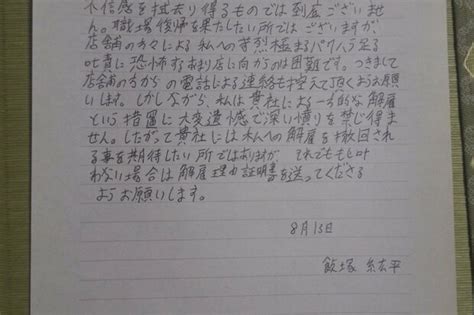 不信感を拭去り得るものでは到底ございませ
ん。職場復帰を果たしたい所ではございますが、
店舗の方々による私への苛烈極まるパワハラ足る
叱責に恐怖すなわお店に向かうのは困難です。つきまして
店舗の方からの電話による連絡も控えて頂くようお願い
します。しかしながら、私は貴社による一方的な解雇
という措置に大変遺憾で深い憤りを禁じ得ま
せん。したがって貴社には私への解雇を撤回され
る事を期待したい所ではありますが、それでももし叶
わない場合は解雇理由証明書を送ってくださる
ようお願いします。
8月13日
飯塚 紘平